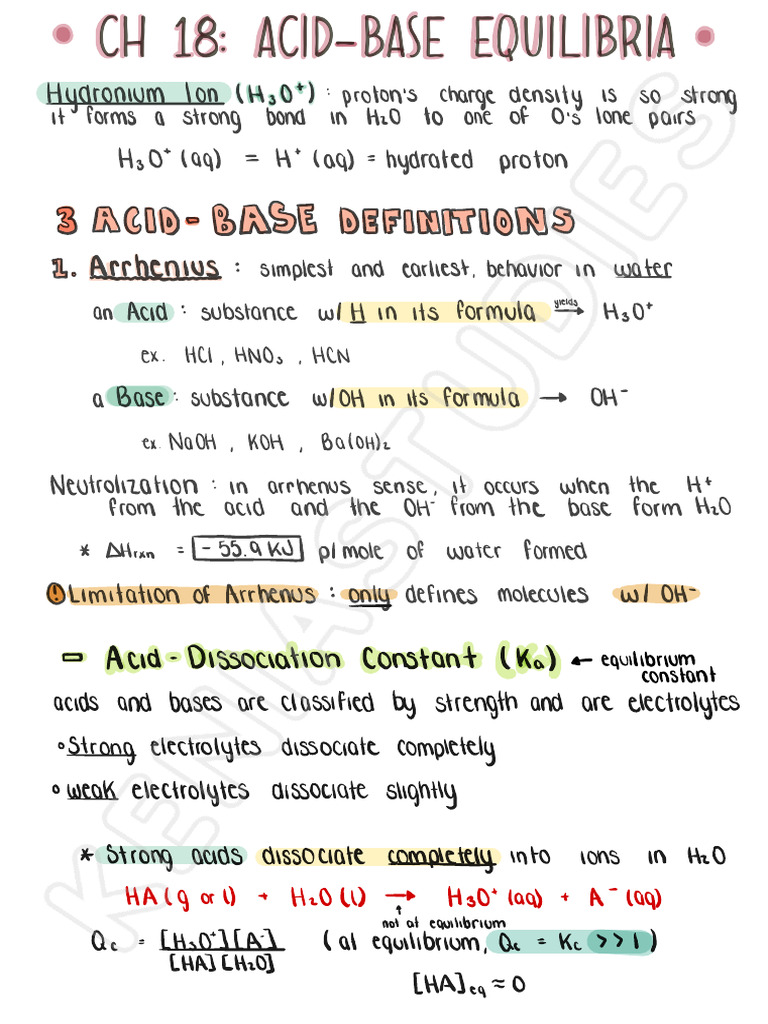 • CH 18: ACID-BASE EQUILIBRIA •
Hydronium Ion (H₃O⁺) : proton's charge density is so strong
it forms a strong bond in H₂O to one of O's lone pairs
H₃O⁺ (aq) = H⁺ (aq) = hydrated proton
3 ACID-BASE DEFINITIONS
1. Arrhenius : simplest and earliest, behavior in water
an Acid : substance w/ H in its formula yields→ H₃O⁺
ex. HCl , HNO₃ , HCN
a Base : substance w/OH in its formula → OH⁻
ex. NaOH , KOH , Ba(OH)₂
Neutrolization : in arrhenus sense, it occurs when the H⁺
from the acid and the OH⁻ from the base form H₂O
* ΔHrxn = -55.9 KJ p/mole of water formed
! Limitation of Arrhenus : only defines molecules w/ OH⁻
- Acid-Dissociation Constant (Ka) ← equilibrium
constant
acids and bases are classified by strength and are electrolytes
• Strong electrolytes dissociate completely
• weak electrolytes dissociate slightly
* Strong acids dissociate completely into ions in H₂O
HA (g or l) + H₂O (l) → H₃O⁺ (aq) + A⁻ (aq)
↑
not at equilibrium
Qc = [H₃O⁺][A⁻] / [HA][H₂O] (at equilibrium, Qc = Kc >> 1)
[HA]eq ≈ 0
KENIASTUDIES